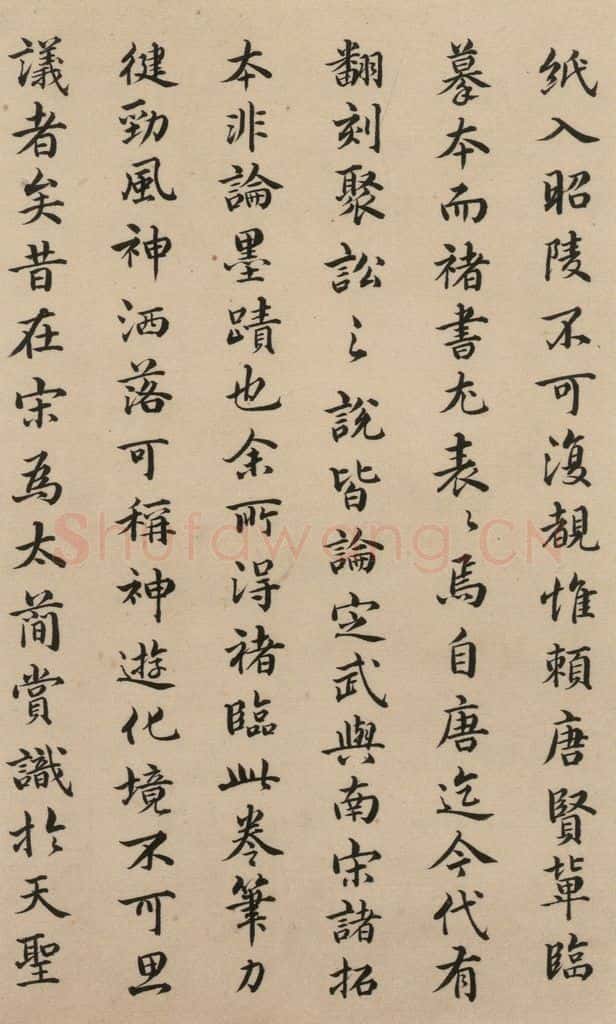 紙入昭陵不可復覩惟賴唐賢輩臨
摹本而褚書尤表〻焉自唐迄今代有
翻刻聚訟〻說皆論定武與南宋諸拓
本非論墨蹟也余所得褚臨此卷筆力
健勁風神洒落可稱神遊化境不可思
議者矣昔在宋為太簡賞識於天聖
Shufawang.CN